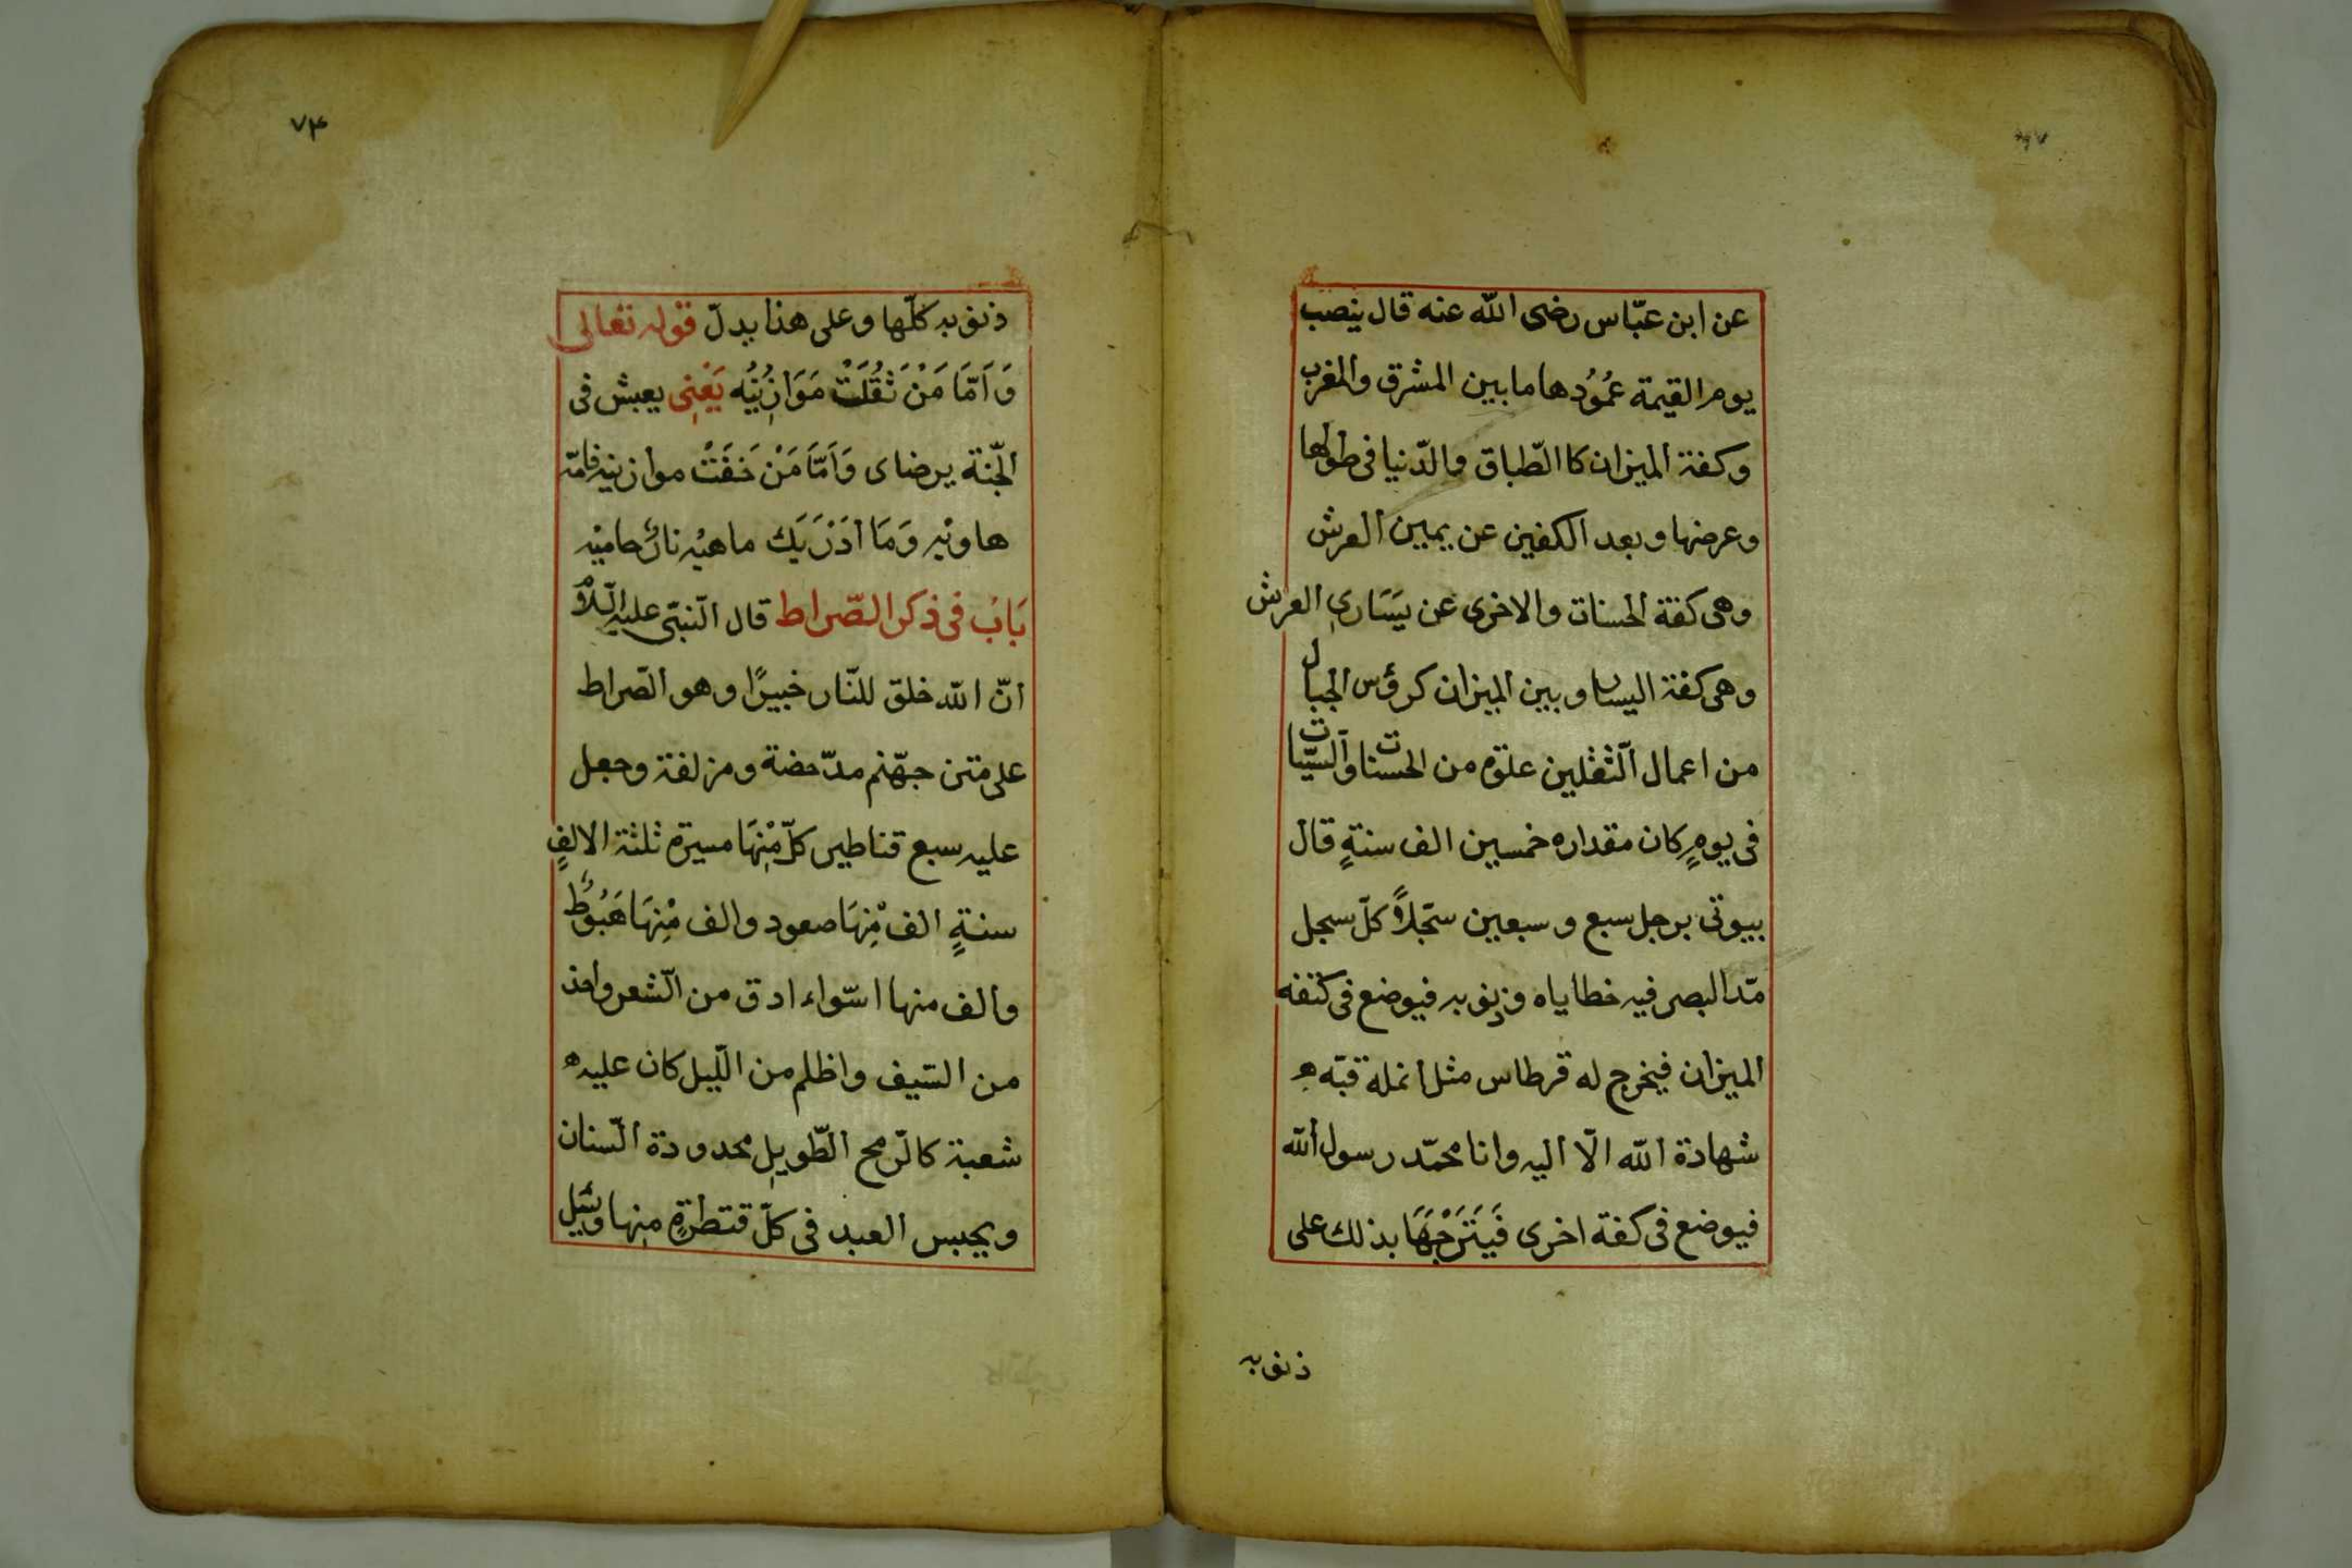 عن ابن عبّاس رضى الله عنه قال ينصب
يوم القيمة عُمُوُدها ما بين المشرق والمغرب
وكفة الميزان كا الطّباق والدّنيا فى طولها
وعرضها وبعد الكفين عن يمين العرش
وهى كفة الحسنات والاخرى عن يَسَارىِ العرش
وهى كفة اليسار وبين الميزان كرؤس الجبال
من اعمال الثّقلين علوّه من الحسنات والسيّات
فى يومٍ كان مقداره خمسين الف سنةٍ قال
بيوتى برجل سبع وسبعين سجّلاً كلّ سجل
مدّ البصر فيه خطاياه وذنوبه فيوضع فى كنفه
الميزان فيخرج له قرطاس مثل انملة قبّه
شهادة الله الّا اليه وانا محمّد رسول الله
فيوضع فى كفة اخرى فَيَتَرَجْهَا بذلك على
ذنوبه
٧٣
ذنوبه كلّها وعلى هذا يدلّ قوله تعالى
وَاَمَّا مَنْ ثَقُلَتْ مَوَازِيُنُه يَعْنِى يعبش فى
الجّنة يرضاى وَاَمَّا مَنْ خَفَتْ موازنيه فامّه
هاويْه وَمَا اَدَرَيَك ماهيُه نارٌ حاميه
بَابُ فى ذكر الصّراط قال النّبىّ عليه السّلامُ
انّ الله خلق للنّار خبيرًا وهو الصّراط
على متن جهّنم مدّحضة ومزلفة وجعل
عليه سبع قناطير كلّ مِْنهَا مسيرة ثلثة الالفٍ
سنةٍ الف مِْنهَا صعود والف مِْنهَا هَبُوُطٌ
والف منها اسّواء ادق من الشّعر واحد
من السّيف واظلم من الّليل كان عليه
شعبة كالرّمح الطّويلِ محدودة السّنان
ويحبس العبد فى كلّ قنطرةٍ منها ويسئل